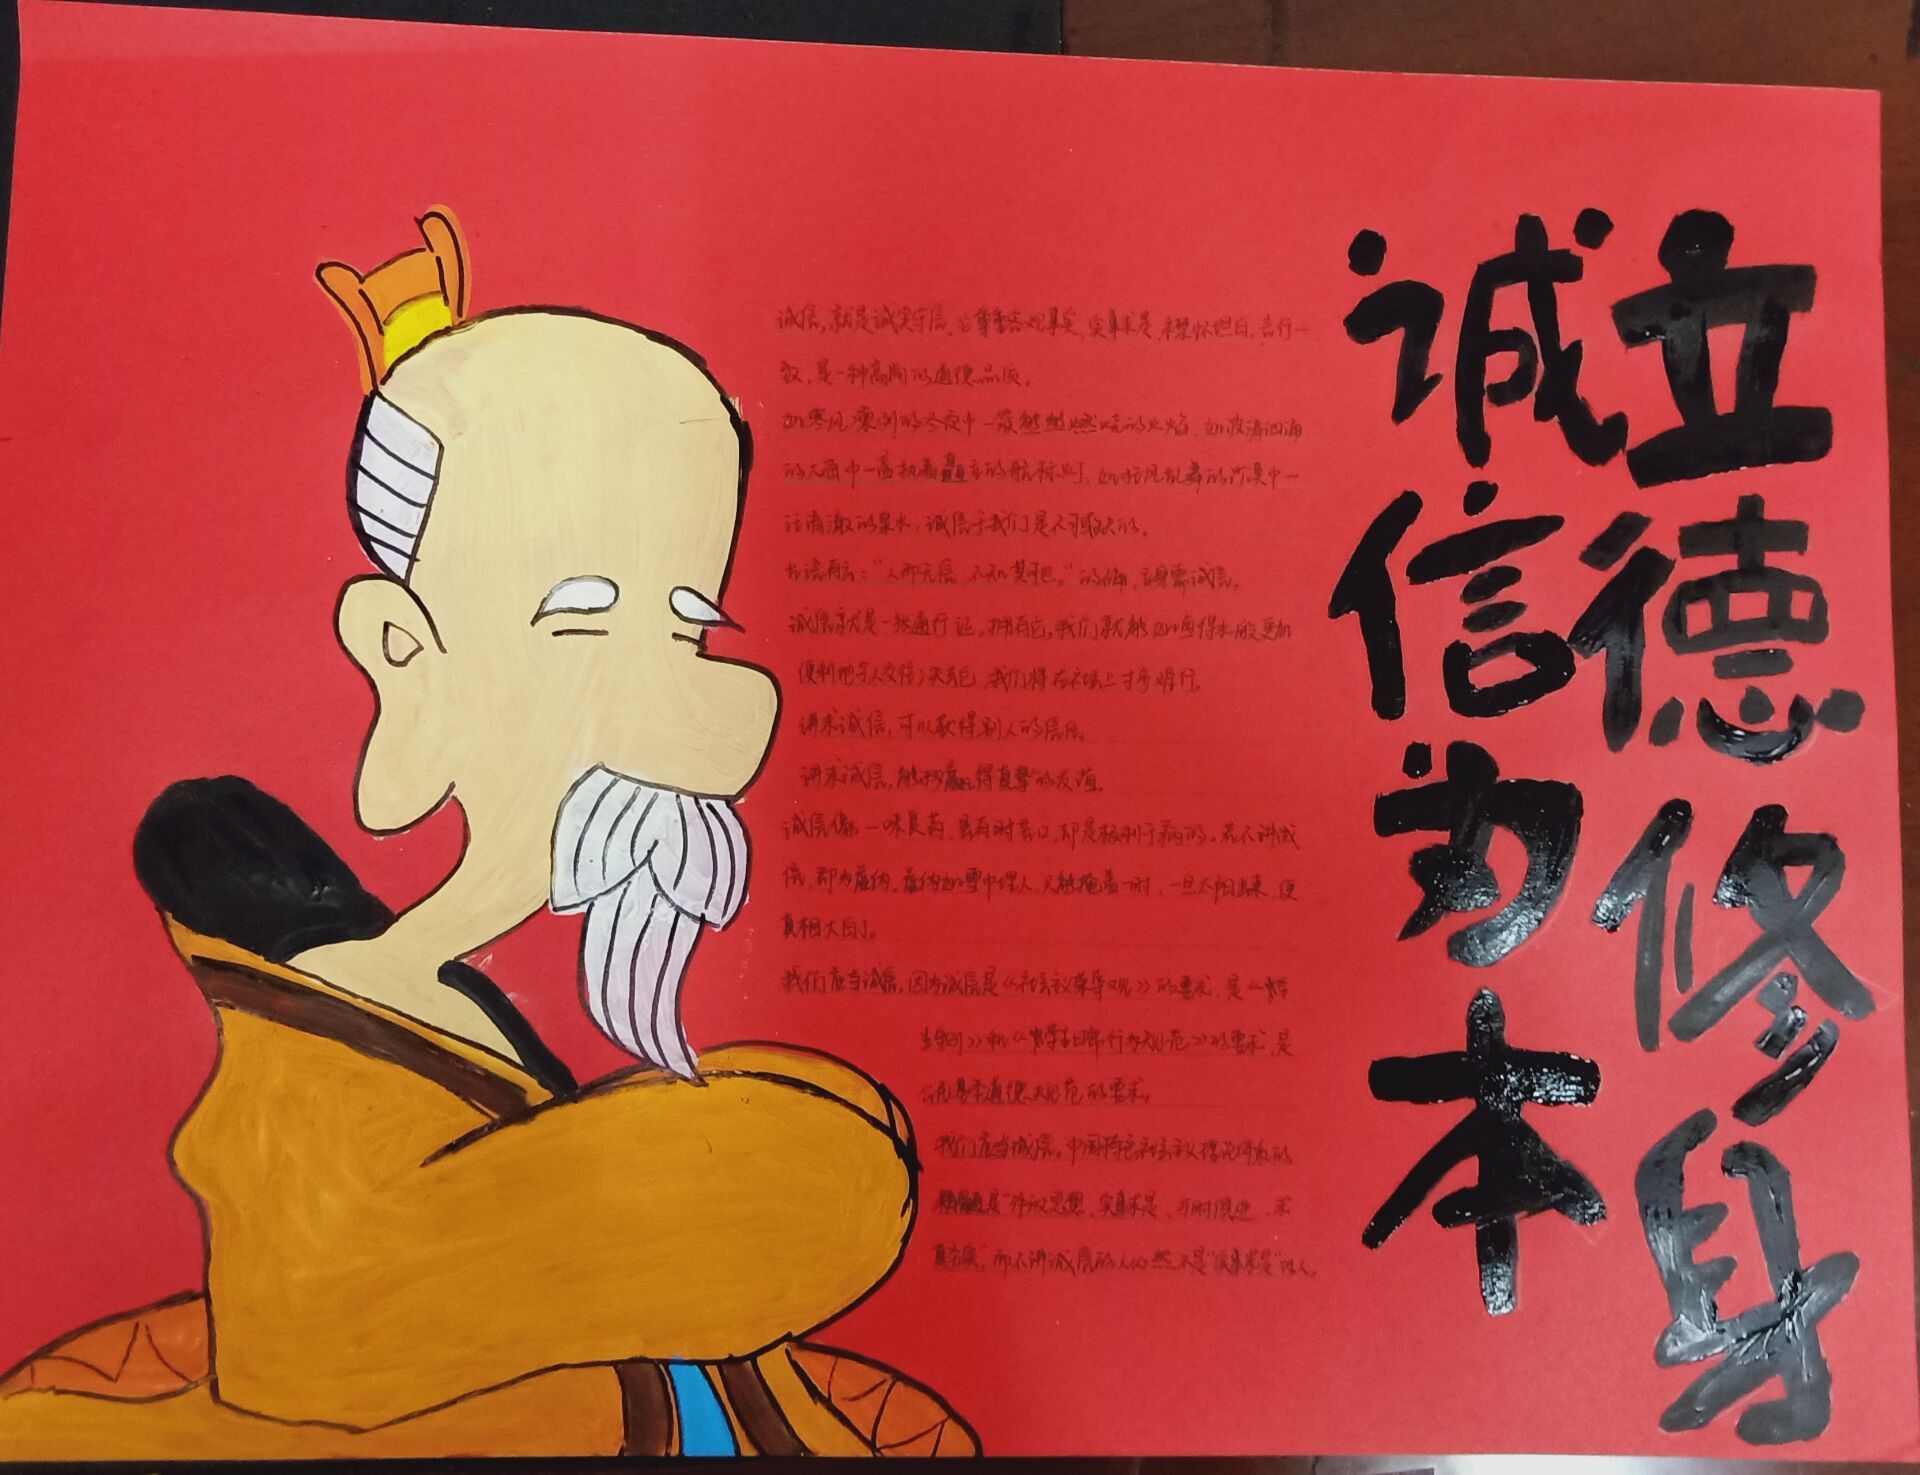 立德修身
诚信为本
诚信，就是诚实守信，它尊重客观事实，实事求是，襟怀坦白，言行一
致，是一种高尚的道德品质。
如寒风凛冽的冬夜中一簇熊熊燃烧的火焰，如波涛汹涌
的大海中一盏执着矗立的航标灯，如狂风乱舞的沙漠中一
汪清澈的泉水，诚信于我们是不可或缺的。
古语有云：“人而无信，不知其可也。”的确，立身需诚信。
诚信就是一张通行证。拥有它，我们就能如鱼得水般更加
便利地与人交信；失去它 我们将在社会上寸步难行。
讲求诚信，可以获得别人的信任。
讲求诚信，能够赢得真挚的友谊。
诚信像一味良药，虽有时苦口，却是极利于病的。若不讲诚
信，即为虚伪。虚伪如雪中埋人，只能掩盖一时，一旦太阳出来，便
真相大白了。
我们应当诚信。因为诚信是《社会主义荣辱观》的要求，是《中学
生守则》和《中学生日常行为规范》的要求，是
公民基本道德规范的要求。
我们应当诚信。中国特色社会主义理论体系的
精髓是“解放思想、实事求是、与时俱进、求
真务实”，而不讲诚信的人必然不是“实事求是”的人。